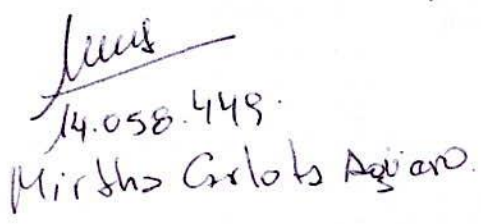 14.058.449.
Mirtha Carlota Agüero